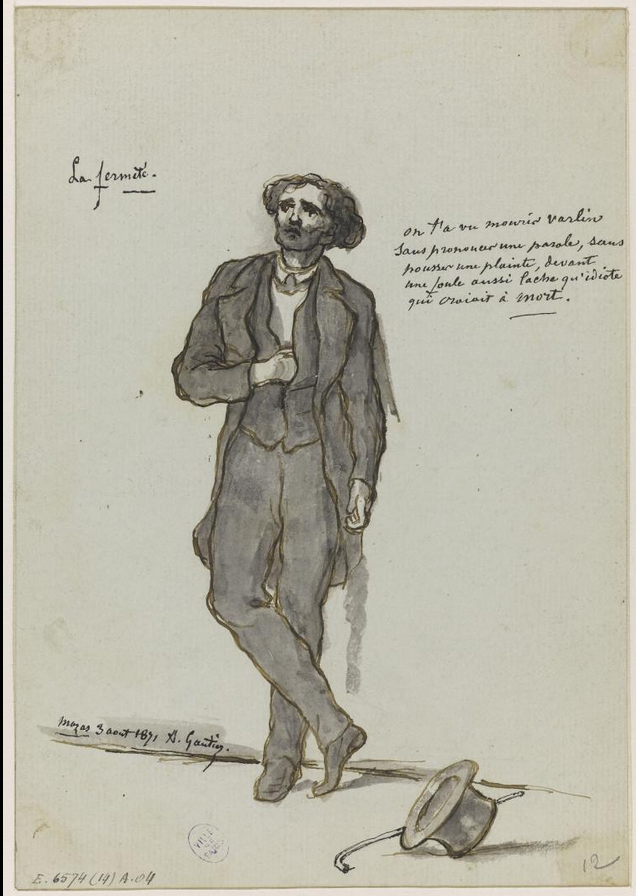 La fermeté.
on t'a vu mourir varlin
sans prononcer une parole, sans
pousser une plainte, devant
une foule aussi lache qu'idiote
qui criait à mort.
mazas 3 aout 1871 A. Gautier.
VILLE
DE
PARIS
E. 6574 (14) A-04
12